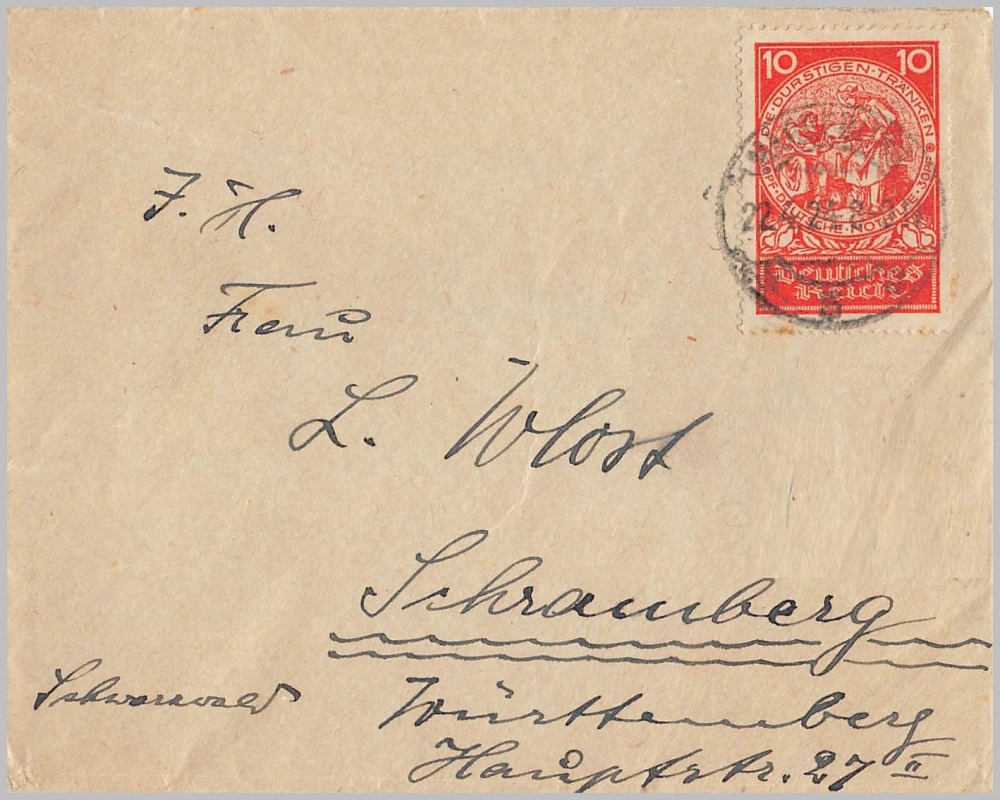 10 10
DIE · DURSTIGEN · TRÄNKEN
10PF · DEUTSCHE · NOTHILFE · 30PF
Deutsches
Reich
22. 24. 2-
J. H.
Frau
L. Wlost
Schramberg
Schwarzwald
Württemberg
Hauptstr. 27 II